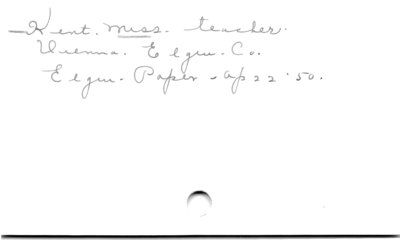 — Kent. Miss. teacher.
Vienna. Elgin. Co.
Elgin. Paper - ap 22. 50.